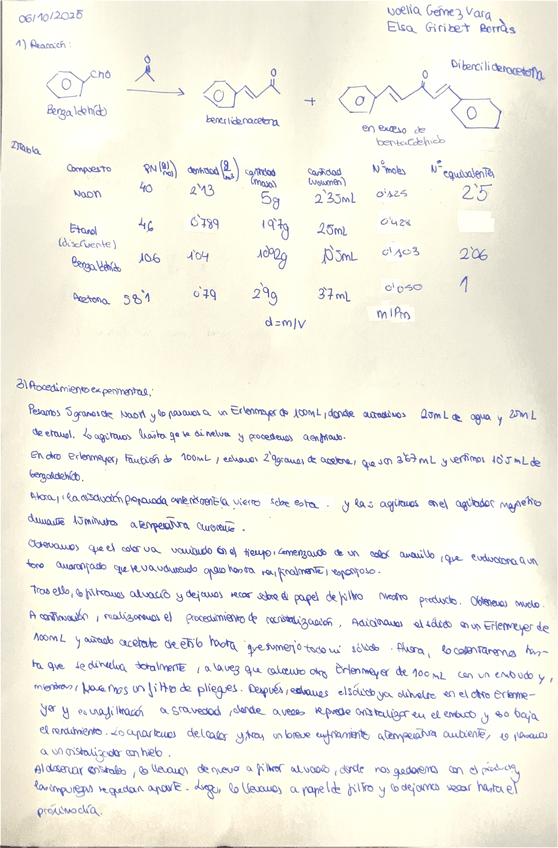 06/10/2025
Noelia Gómez Vara
Elsa Giribet Borràs
1) Reacción:
CHO
O
O
O
Dibencilidenacetona
Benzaldehído
bencilidenacetona
+
en exceso de benzaldehido
2) Tabla
Compuesto PM (g/mol) densidad (g/mL) cantidad (masa) cantidad (volumen) Nº moles Nº equivalentes
NaOH 40 2'13 5g 2'35mL 0'125 2'5
Etanol (disolvente) 46 0'789 19'7g 25mL 0'428
Benzaldehído 106 1'04 10'92g 10'5mL 0'103 2'06
Acetona 58'1 0'79 2'9g 3'7mL 0'050 1
d=m/V
m/Pm
3) Procedimiento experimental:
Pesamos 5 gramos de NaOH y lo pasamos a un Erlenmeyer de 100mL, donde 25mL de agua y 25mL
de etanol. Lo agitamos hasta que se disuelva y procedemos a enfriarlo.
En otro Erlenmeyer, también de 100mL, echamos 2'9gramos de acetona, que son 3'67mL y vertimos 10'5mL de
benzaldehído.
Ahora, la disolución preparada anteriormente la vierto sobre esta. y las agitamos en el agitador magnético
durante 15 minutos a temperatura ambiente.
Observamos que el color va variando con el tiempo, comenzando de un color amarillo, que evoluciona a un
tono anaranjado que se va hasta ser, finalmente, espojoso.
Tras ello, lo filtramos al vacío y dejamos secar sobre el papel de filtro nuestro producto. Obtenemos
A continuación, realizaremos el procedimiento de recristalización. Adicionamos el sólido en un Erlenmeyer de
100mL y añado acetato de etilo hasta que sumerjo todo mi sólido. Ahora, lo calentaremos has-
ta que se disuelva totalmente, a la vez que caliento otro Erlenmeyer de 100mL con un embudo y,
mientras, hacemos un filtro de pliegues. Después, echamos el sólido ya disuelto en el otro Erlenme-
yer y es una filtración a gravedad, donde a veces se puede cristalizar en el embudo y eso baja
el rendimiento. Lo apartamos del calor y, tras un breve enfriamiento a temperatura ambiente, lo llevamos
a un cristalizador con hielo.
Al observar cristales, lo llevamos de nuevo a filtrar al vacío, donde nos quedaremos con el producto y
las impurezas se quedan aparte. Luego, lo llevamos a papel de filtro y lo dejamos secar hasta el
próximo día.